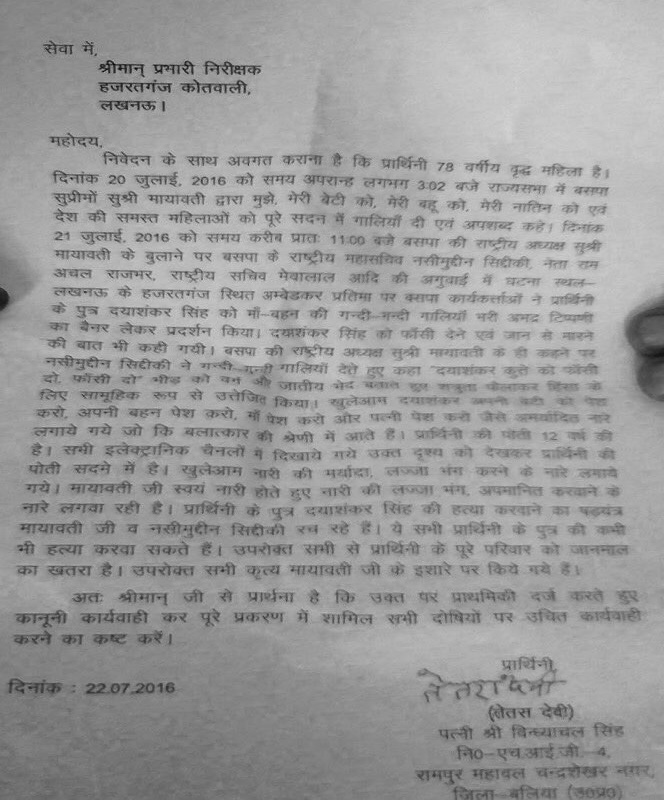 सेवा में,
श्रीमान् प्रभारी निरीक्षक
हजरतगंज कोतवाली,
लखनऊ।
महोदय,
निवेदन के साथ अवगत कराना है कि प्रार्थिनी 78 वर्षीय वृद्ध महिला है।
दिनांक 20 जुलाई, 2016 को समय अपरान्ह लगभग 3:02 बजे राज्यसभा में बसपा
सुप्रीमों सुश्री मायावती द्वारा मुझे, मेरी बेटी को, मेरी बहू को, मेरी नातिन को एवं
देश की समस्त महिलाओं को पूरे सदन में गालियाँ दी एवं अपशब्द कहे। दिनांक
21 जुलाई, 2016 को समय करीब प्रातः 11:00 बजे बसपा की राष्ट्रीय अध्यक्ष सुश्री
मायावती के बुलाने पर बसपा के राष्ट्रीय महासचिव नसीमुद्दीन सिद्दीकी, नेता राम
अचल राजभर, राष्ट्रीय सचिव मेवालाल आदि की अगुवाई में घटना स्थल–
लखनऊ के हजरतगंज स्थित अम्बेडकर प्रतिमा पर बसपा कार्यकर्त्ताओं ने प्रार्थिनी
के पुत्र दयाशंकर सिंह को माँ–बहन की गन्दी–गन्दी गालियाँ भरी अभद्र टिप्पणी
का बैनर लेकर प्रदर्शन किया। दयाशंकर सिंह को फाँसी देने एवं जान से मारने
की बात भी कही गयी। बसपा की राष्ट्रीय अध्यक्ष सुश्री मायावती के ही कहने पर
नसीमुद्दीन सिद्दीकी ने गन्दी–गन्दी गालियाँ देते हुए कहा "दयाशंकर कुत्ते को फाँसी
दो, फाँसी दो" भीड़ को जातीय भेद हिंसा के
लिए सामूहिक रूप से उत्तेजित किया। खुलेआम दयाशंकर अपनी बेटी को पेश
करो, अपनी बहन पेश करो, माँ पेश करो और पत्नी पेश करो जैसे अमर्यादित नारे
लगाये गये जो कि बलात्कार की श्रेणी में आते हैं। प्रार्थिनी की पोती 12 वर्ष की
है। सभी इलेक्ट्रानिक चैनलों में दिखाये गये उक्त दृश्य को देखकर प्रार्थिनी की
पोती सदमे में है। खुलेआम नारी की मर्यादा, लज्जा भंग करने के नारे लगाये
गये। मायावती जी स्वयं नारी होते हुए नारी की लज्जा भंग, अपमानित करवाने के
नारे लगवा रही है। प्रार्थिनी के पुत्र दयाशंकर सिंह की हत्या करवाने का षडयंत्र
मायावती जी व नसीमुद्दीन सिद्दीकी रच रहे हैं। ये सभी प्रार्थिनी के पुत्र की कभी
भी हत्या करवा सकते हैं। उपरोक्त सभी से प्रार्थिनी के पूरे परिवार को जानमाल
का खतरा है। उपरोक्त सभी कृत्य मायावती जी के इशारे पर किये गये हैं।
अतः श्रीमान् जी से प्रार्थना है कि उक्त पर प्राथमिकी दर्ज करते हुए
कानूनी कार्यवाही कर पूरे प्रकरण में शामिल सभी दोषियों पर उचित कार्यवाही
करने का कष्ट करें।
प्रार्थिनी,
दिनांक : 22.07.2016
तेतरा देवी
(तेतरा देवी)
पत्नी श्री विन्ध्याचल सिंह
नि0–एच.आई.जी.–4,
रामपुर महावल चन्द्रशेखर नगर,
जिला–बलिया (उ०प्र०)